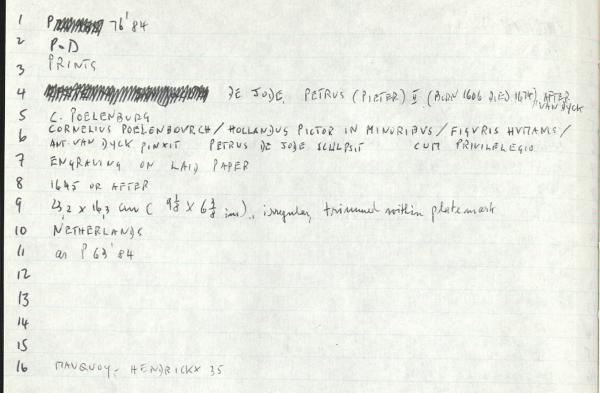 1 P 76'84
2 P-D
3 PRINTS
4 DE JODE, PETRUS (PIETER) II (BORN 1606 DIED 1674) AFTER VAN DYCK
5 C. POELENBURG
6 CORNELIUS POELENBOURCH / HOLLANDUS PICTOR IN MINORIBUS / FIGURIS HUMANIS /
ANT. VAN DYCK PINXIT PETRUS DE JODE SCULPSIT CUM PRIVILELEGIO
7 ENGRAVING ON LAID PAPER
8 1645 OR AFTER
9 23,2 x 16,3 cm ( 9 1/8 x 6 3/8 ins)., irregular, trimmed within platemark
10 NETHERLANDS
11 as P 63'84
12
13
14
15
16 MAUQUOY-HENDRICKX 35